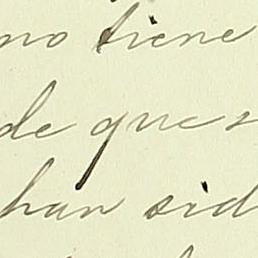 no tiene
de ques
han sid